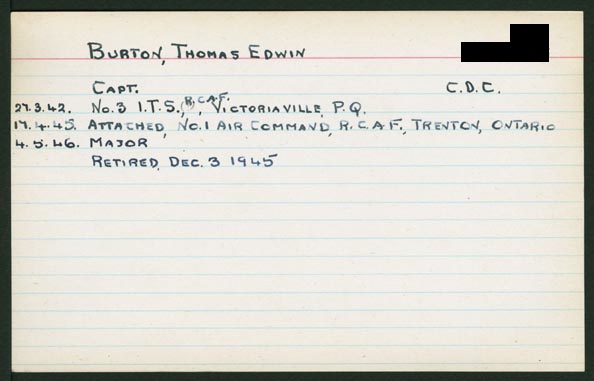 BURTON, THOMAS EDWIN
CAPT. C.D.C.
27.3.42. No.3 I.T.S., (R.C.A.F.), VICTORIAVILLE, P.Q.
17.4.45. ATTACHED, No.1 AIR COMMAND, R.C.A.F., TRENTON, ONTARIO
4.5.46. MAJOR
RETIRED, DEC. 3 1945